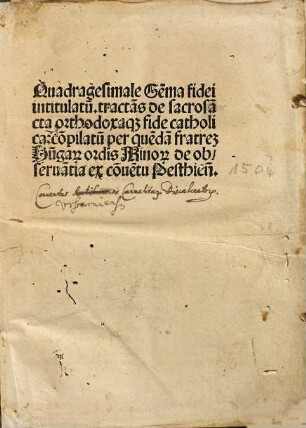 Quadragesimale Gēma fidei
intitulatū. tractās de sacrosā
cta orthodoxaqꝫ fide catholi
ca: cōpilatū per quēdā fratreꝫ
Hūgaꝝ ordīs Minoꝝ de ob/
seruātia ex cōuētu Pesthien̄.
1504
Conventus Carmelitarū Discalceatorū